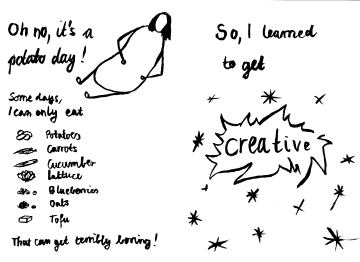 Oh no, it's a
potato day!
Some days,
I can only eat
Potatoes
Carrots
Cucumber
Lattuce
Blueberries
Oats
Tofu
That can get terribly boring!
So, I learned
to get
creative